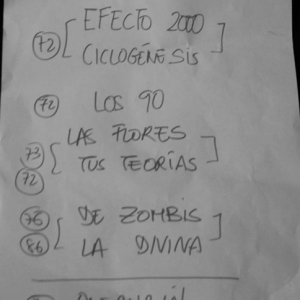 EFECTO 2000
72 CICLOGÉNESIS
72 LOS 90
73 LAS FLORES
72 TUS TEORÍAS
76 DE ZOMBIS
86 LA DIVINA